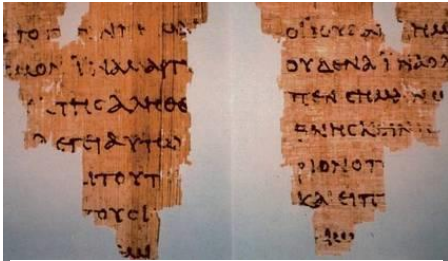 CΜΟΝΪΝΑΜΑΡΤΥ
ΤΗCΑΛΗΘΕ
ΕΓΕΙΑΥΤΩ
ΙΤΟΥΤ
ΤΟΥCΙ
ΟΪΙΟΥΔΑΙ ΗΜ
ΟΥΔΕΝΑΪΝΑΟΛ
ΠΕΝCΗΜΑΙΝΩ
ΘΝΗCΚΕΙΝ
ΡΙΟΝΟΠ
ΚΑΙΕΙΠ